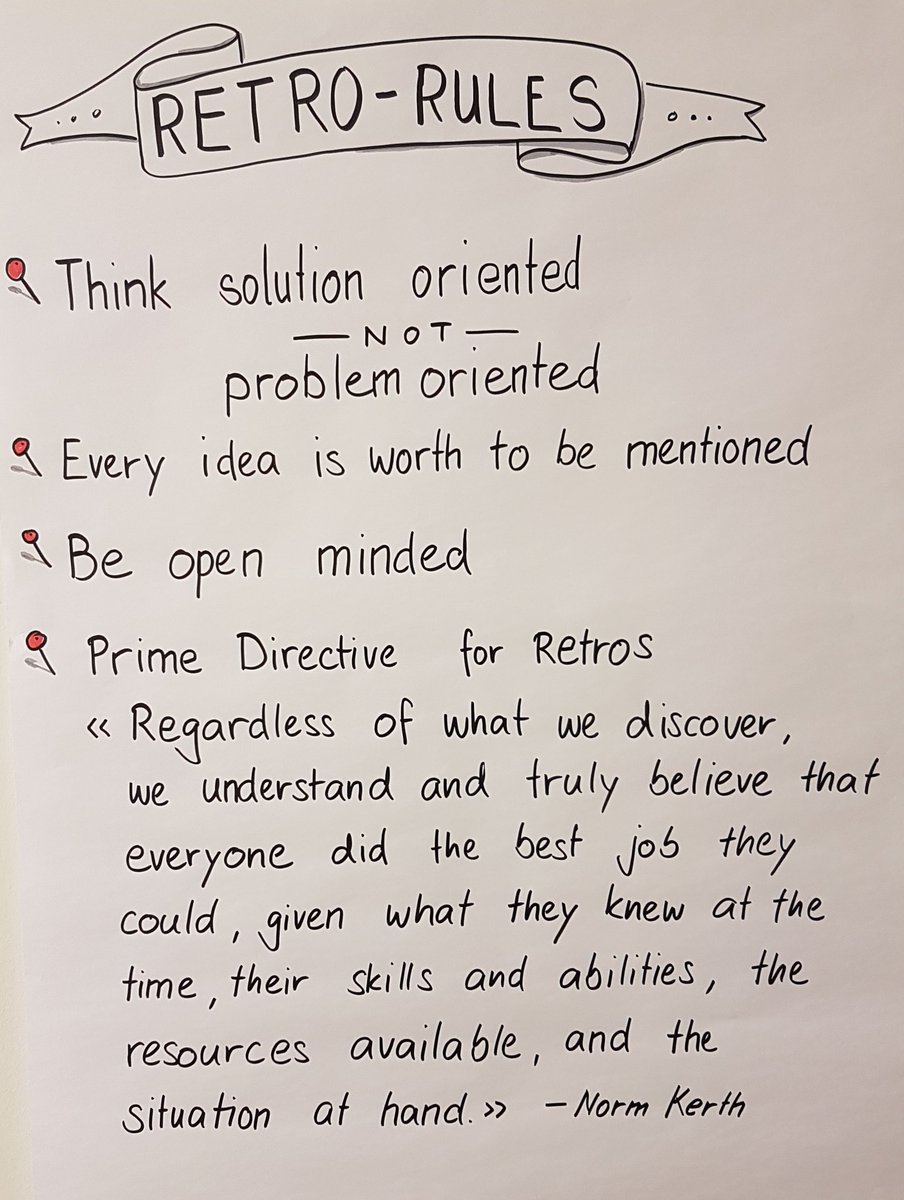 RETRO-RULES
Think solution oriented
— NOT —
problem oriented
Every idea is worth to be mentioned
Be open minded
Prime Directive for Retros
« Regardless of what we discover,
we understand and truly believe that
everyone did the best job they
could, given what they knew at the
time, their skills and abilities, the
resources available, and the
situation at hand.» – Norm Kerth